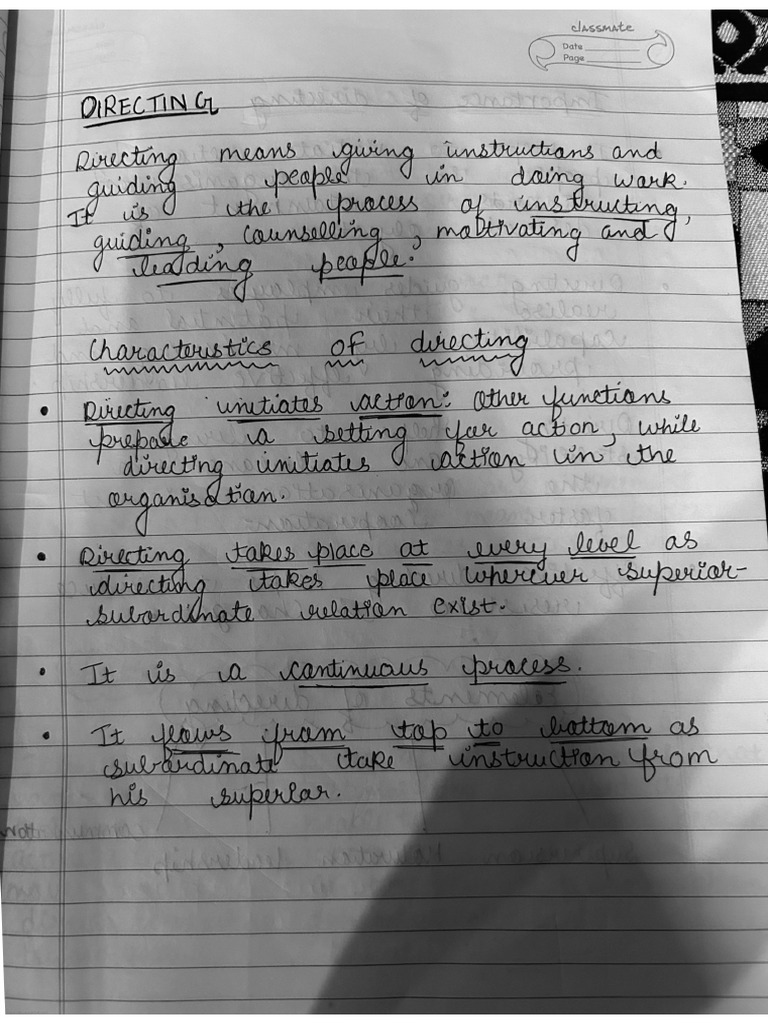 classmate
Date
Page
DIRECTING
Directing means giving instructions and
guiding people in doing work.
It is the process of instructing,
guiding, counselling, motivating and
leading people.
Characteristics of directing
• Directing initiates action: Other functions
prepare a setting for action, while
directing initiates action in the
organisation.
• Directing takes place at every level as
directing takes place wherever superior-
subordinate relation exist.
• It is a continuous process.
• It flows from top to bottom as
subordinate take instruction from
his superior.